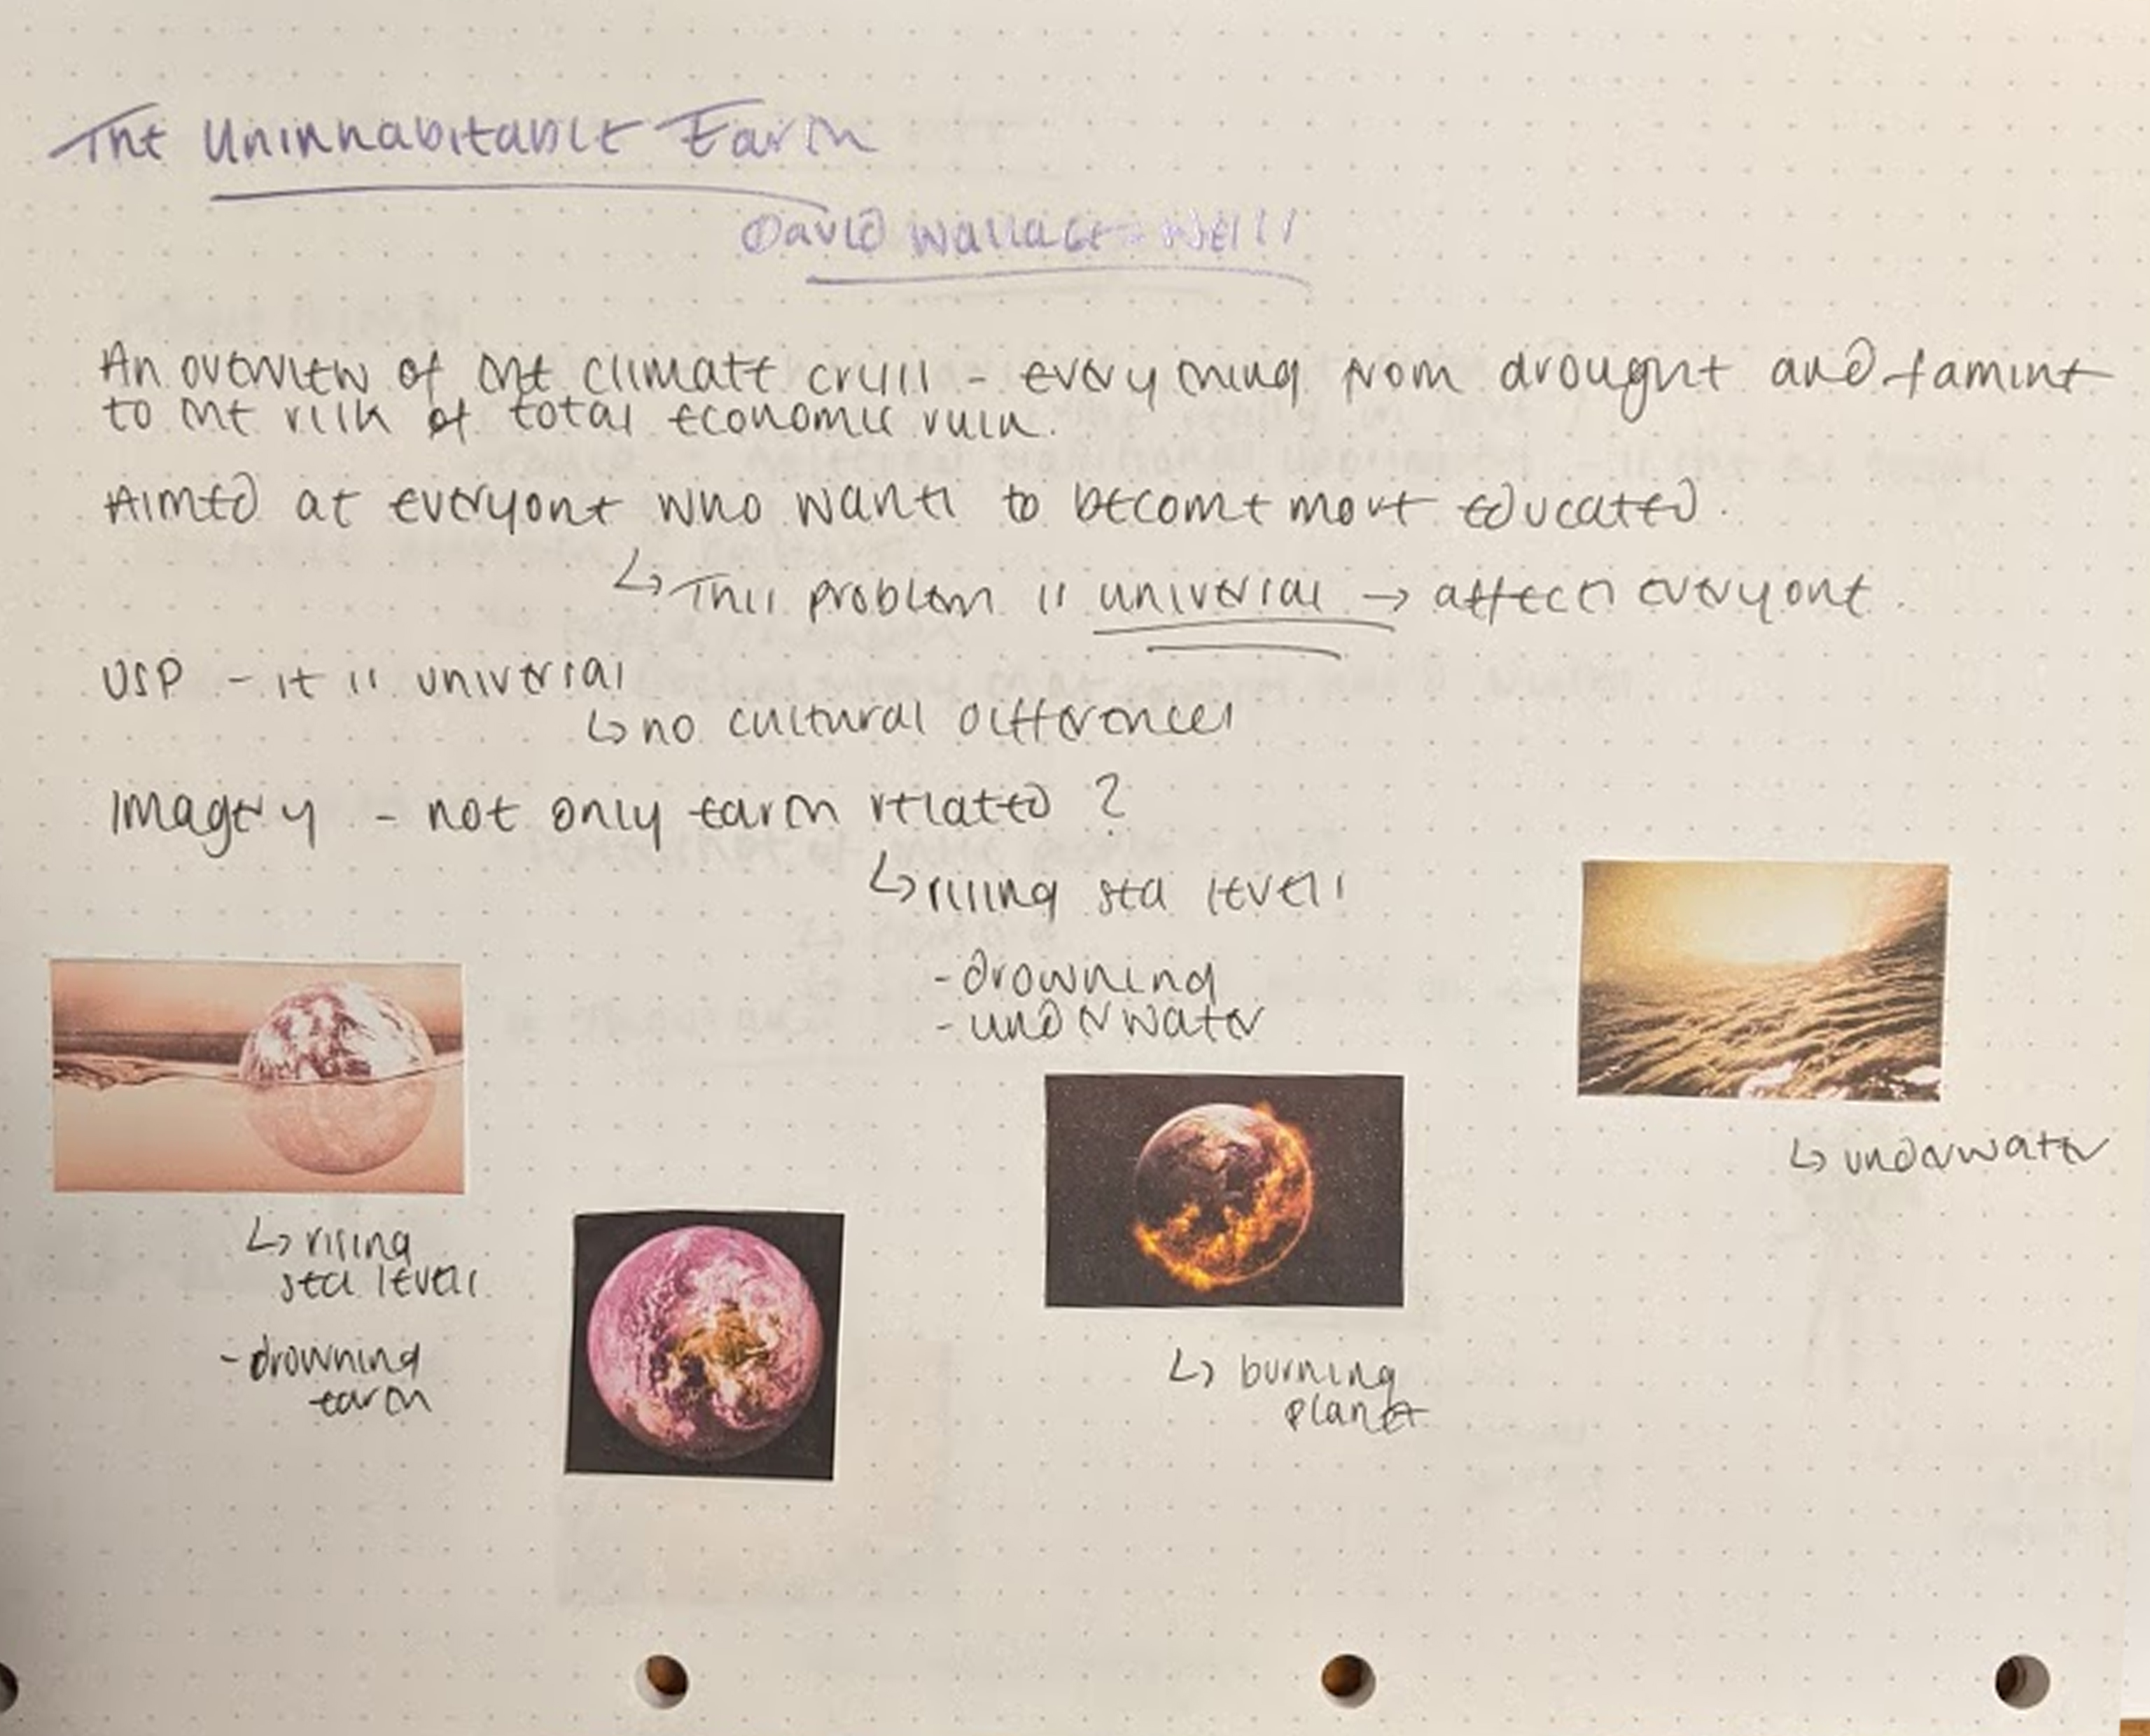 The Uninhabitable Earth
David Wallace-Wells
An overview of the climate crisis - everything from drought and famine
to the risk of total economic ruin.
Aimed at everyone who wants to become more educated.
↳ This problem is universal → affects everyone.
USP - it is universal
↳ no cultural differences
Imagery - not only earth related?
↳ rising sea levels
- drowning
- underwater
↳ underwater
↳ rising
sea levels
- drowning
earth
↳ burning
planet